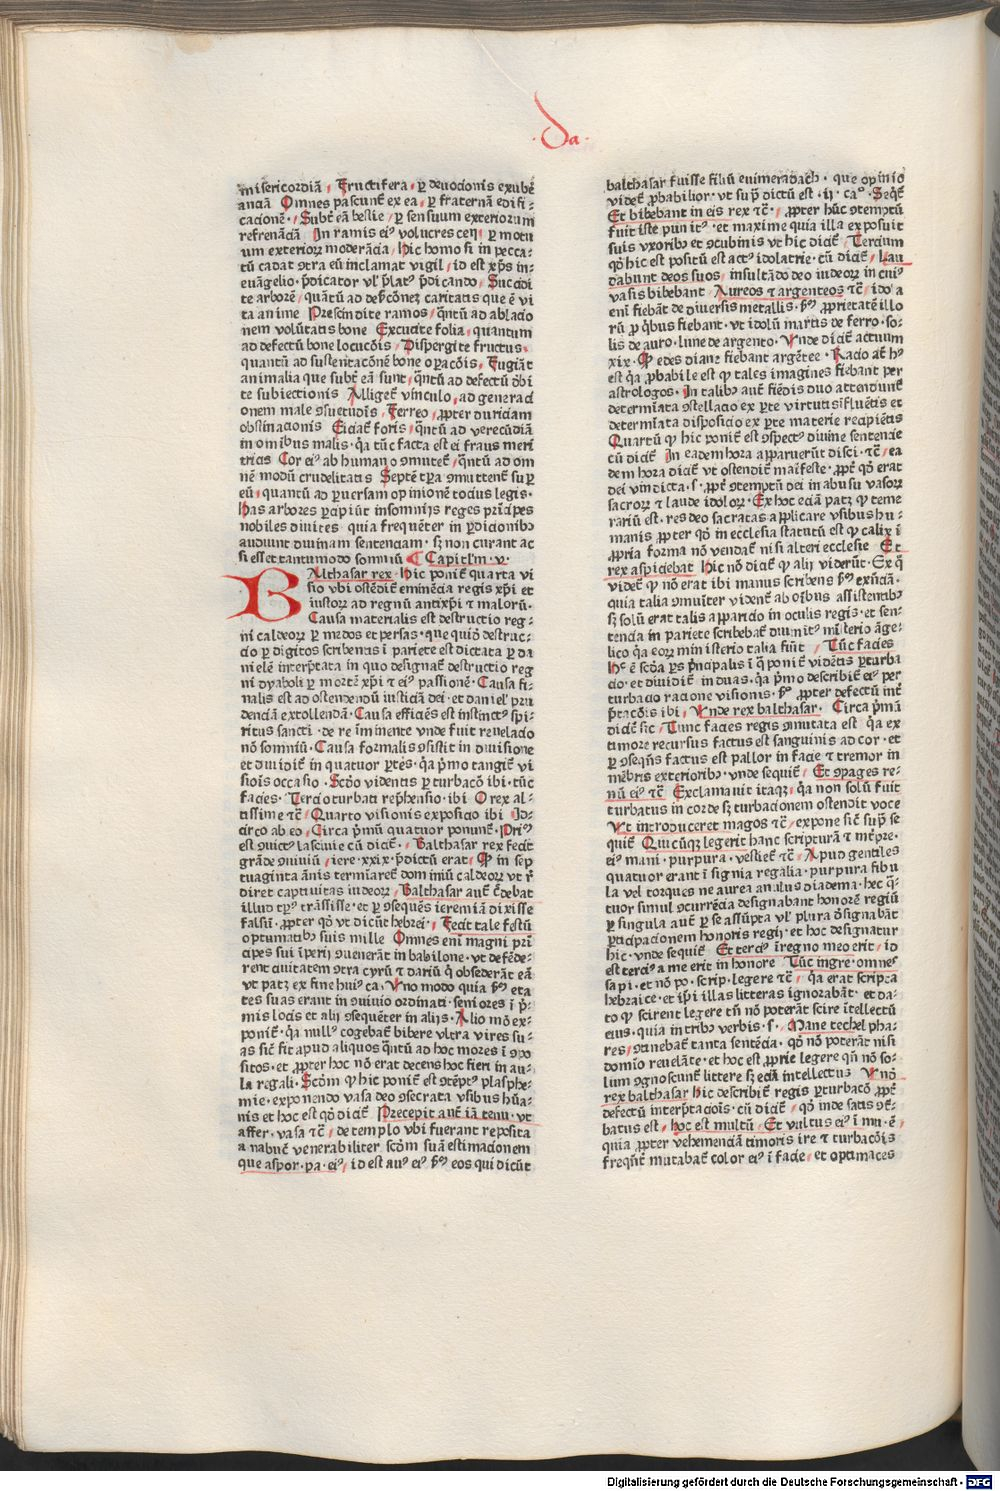 ·Da·
misericordiā Fructifera ꝑ deuocionis exubē
anciā Omnes pascunt̄ ex ea ꝑ fraternā edifi⸗
cacionē· Subt̄ eā bestie ꝑ sensuum exteriorum
refrenāciā In ramis ei⁹ volucres celi ꝑ motu
um exterioꝝ moderācia Hic homo si in pecca⸗
tū cadat ꝯtra eū inclamat vigil id est xp̄s in⸗
euāgelio· p̄dicator vl̓ p̄lat⁹ p̄dicando Succidi
te arborē quātū ad defc̄onēz caritatis que ē vi
ta anime Prescindite ramos qn̄tū ad ablacio
nem volūtatis bone Excucite folia quantum
ad defectū bone locucōis Dispergite fructus
quantū ad sustentacōnē bone oꝑacōis Fugiāt
animalia que subt̄ eā sunt qn̄tū ad defectū d̄bi
te subiectionis Alliget̄ vinculo ad generaci
onem male ꝯsuetudis Ferreo ꝓpter duriciam
obstinacionis Eiciat̄ foris qn̄tū ad verecūdiā
in omībus malis· q̄a tūc facta est ei fraus meri
tricis Cor ei⁹ ab humano ꝯmutet̄ qn̄tū ad om
nē modū crudelitatis Septē tꝑa ꝯmuttent̄ suꝑ
eū quantū ad ꝑuersam opinionē tocius legis·
Has arbores ꝑcipiūt insomnijs reges prīcipes
nobiles diuites quia frequēter in ꝑdicionibꝫ
audiunt diuinam sentenciam· sꝫ non curant ac
si esset tantūmodo somniū Capitl̓m· v·
BAlthasar rex Hic ponit̄ quarta vi
sio vbi ostēdit̄ eminēcia regis xp̄i et
iustoꝝ ad regnū antixp̄i ⁊ maloꝝ·
Causa materialis est destructio reg⸗
ni caldeoꝝ ꝑ medos et persas· que quiō destruc⸗
cio ꝑ digitos scribentis ī pariete est dictata ꝑ da
nielē interp̄tata in quo designat̄ destructio reg
ni dyaboli ꝑ mortē xp̄i ⁊ ei⁹ passionē· Causa fi⸗
nalis est ad ostendendū iusticiā dei· et daniel̓ pru
denciā extollendā· Causa efficiēs est instinct⁹ spi⸗
ritus sancti· de re īminente vnde fuit reuelacio
nō somniū· Causa formalis ꝯsistit in diuisione
et diuidit̄ in quatuor ꝑtes· q̄a p̄mo tangit̄ vi
siōis occasio· Scd̄o videntis ꝑturbacō ibi· tūc
facies· Tercio turbati rep̄hensio· ibi O rex al⸗
tissime ⁊c̄ Quarto visionis exposicio ibi Id⸗
circo ab eo Circa p̄mū quatuor ponunt̄ Pri⁹
est ꝯuict⁹ lasciuie cū dicit̄· Balthasar rex fecit
grāde ꝯuiuiū iere· xxix· p̄dictū erat Ꝙ in sep
tuaginta ānis termiaret̄ dominiū caldeoꝝ vt r̄
diret captiuitas iudeoꝝ Balthasar aut̄ c̄debat
illud tp̄⁹ trāsisse· et ꝑ ꝯsequēs ieremiā dixisse
falsū· ꝓpter qō vt dicūt hebrei· Fecit tale festū
optumatibꝫ suis mille Omnes enī magni prī
cipes sui īperij ꝯuenerāt in babilone· vt defēde⸗
rent ciuitatem ꝯtra cyrū ⁊ dariū q̄ obsederāt eā
vt patꝫ ex fine hui⁹ ca· Vno modo quia ẜm eta
tes suas erant in ꝯuiuio ordinati· seniores ī p̄⸗
mis locis et alij ꝯsequēter in alijs· Alio mō ex⸗
ponit̄· q̄a null⁹ cogebat̄ bibere vltra vires su⸗
as sic̄ fit apud aliquos qn̄tū ad hoc mores ī ꝯpo
sitos· et ꝓpter hoc nō erat decens hoc fieri in au⸗
la regali· Scd̄m ꝙ hic ponit̄ est ꝯtēpt⁹ plasphe⸗
mie· exponendo vasa deo ꝯsecrata vsibus hūa⸗
nis et hoc est qō dicit̄ Precepit aut̄ iā tenu· vt
affer· vasa ⁊c̄ de templo vbi fuerant reposita
a nabuc̄ venerabiliter scd̄m suā estimacionem
que aspor· pa· ei⁹ id est aui⁹ ei⁹ ẜm eos qui dicūt
balthasar fuisse filiū euimeradach· que opinio
videt̄ ꝓbabilior· vt sup̄ dictū est· ij· ca°· Seqt̄
Et bibebant in eis rex ⁊c̄· ꝓpter hūc ꝯtemptū
fuit iste punit⁹· et maxime quia illa exposuit
suis vxoribꝫ et ꝯcubinis vt hic dicit̄· Tercium
qō hic est positū est act⁹ idolatrie· cū dicit̄ Lau
dabunt deos suos insultādo deo iudeoꝝ in cui⁹
vasis bibebant Aureos ⁊ argenteos ⁊c̄ ido̓a
enī fiebāt de diuersis metallis· ẜm ꝓprietatē illo
rū ꝓ q̄bus fiebant· vt idolū martis de ferro· so⸗
lis de auro· lune de argento· Vnde dicit̄ actuum
xix· Ꝙ edes diane fiebant argētee· Racio at̄ h⁹
est q̄a ꝓbabile est ꝙ tales imagines fiebant per
astrologos· In talibꝫ aut̄ fiēdis duo attendunt̄
determīata ꝯstellacio ex ꝑte virtutis īfluētis et
determīata disposicio ex ꝑte materie recipiētis
Quartū ꝙ hic ponit̄ est ꝯspect⁹ diuine sentencie
cū dicit̄ In eadem hora apparuerūt disci· ⁊c̄ ea
dem hora dicit̄ vt ostendit̄ maīfeste· ꝓpt̄ qō erat
dei vindicta· s· ꝓpt̄ ꝯtemptū dei in abusu vasoꝝ
sacroꝝ ⁊ laude idoloꝝ· Ex hoc eciā patꝫ ꝙ teme
rariū est· res deo sacratas applicare vsibus hu⸗
manis ꝓpter qō in ecclesia statutū est ꝙ calix ī
ꝓpria forma nō vendat̄ nisi alteri ecclesie Et
rex aspiciebat Hic nō dicit̄ ꝙ alij viderūt· Ex q̄
videt̄ ꝙ nō erat ibi manus scribens ẜm exn̄ciā·
quia talia ꝯmuīter vident̄ ab oībus assistentibꝫ
sꝫ solū erat talis apparicio in oculis regis· et sen⸗
tencia in pariete scribebat̄ diuinit⁹ mīsterio āge⸗
lico q̄a eoꝝ ministerio talia fiūt Tūc facies
H° ē scd̄a ꝑs p̄ncipalis ī q̄ ponit̄ vidētis ꝑturba
cio· et diuidit̄ in duas· q̄a p̄mo describit̄ ei⁹ per
turbacio racione visionis· ẜo ꝓpter defectū int̄
p̄tacōis ibi Vnde rex balthasar· Circa p̄mū
dicit̄ sic Tunc facies regis ꝯmutata est q̄a ex
timore recursus factus est sanguinis ad cor· et
ꝑ ꝯseqn̄s factus est pallor in facie ⁊ tremor in
mēbris exterioribꝫ· vnde sequit̄ Et ꝯpages re⸗
nū ei⁹ ⁊c̄ Exclamauit itaqꝫ q̄a non solū fuit
turbatus in corde sꝫ turbacionem ostendit voce
Vt introduceret magos ⁊c̄ expone sic̄ sup̄ se
quit̄ Quicūqꝫ legerit hanc scripturā ⁊ int̄pre·
ei⁹ mani· purpura· vestiet̄ ⁊c̄ Apud gentiles
quatuor erant īsignia regalia· purpura fibu
la vel torques ne aurea anulus diadema· hec q̄⸗
tuor simul ꝯcurrēcia designabant honorē regiū
ꝑ singula aut̄ ꝑ se assūpta vl̓ plura d̄signabāt
ꝑticipacionem honoris regij· et hoc designatur
hic· vnde sequit̄ Et terci⁹ ī regno meo erit id
est terci⁹ a me erit in honore Tūc ingre· omnes
sapi· et nō po· scrip· legere ⁊c̄ q̄a erat scripta
hebraice· et ip̄i illas litteras ignorabāt· et da⸗
to ꝙ scirent legere tn̄ nō poterāt scire ītellectū
eius· quia in tribꝫ verbis· s· Mane techel pha⸗
res ꝯtinebat̄ tanta sentēcia· qō nō poterāt nisi
domīo reuelāte· et hoc est ꝓprie legere qn̄ nō so⸗
lum ꝯgnoscunt̄ littere sꝫ eciā intellectus Vnō
rex balthasar hic describit̄ regis ꝑturbacō ꝓpt̄
defectū interp̄tacioīs· cū dicit̄ qō inde satis ꝯt̄⸗
batus est hoc est multū Et vultus ei⁹ īmu· ē
quia ꝓpter vehemenciā timoris ire ⁊ turbacōis
freqn̄t̄ mutabat̄ color ei⁹ ī facie et optimates
Digitalisierung gefördert durch die Deutsche Forschungsgemeinschaft - DFG